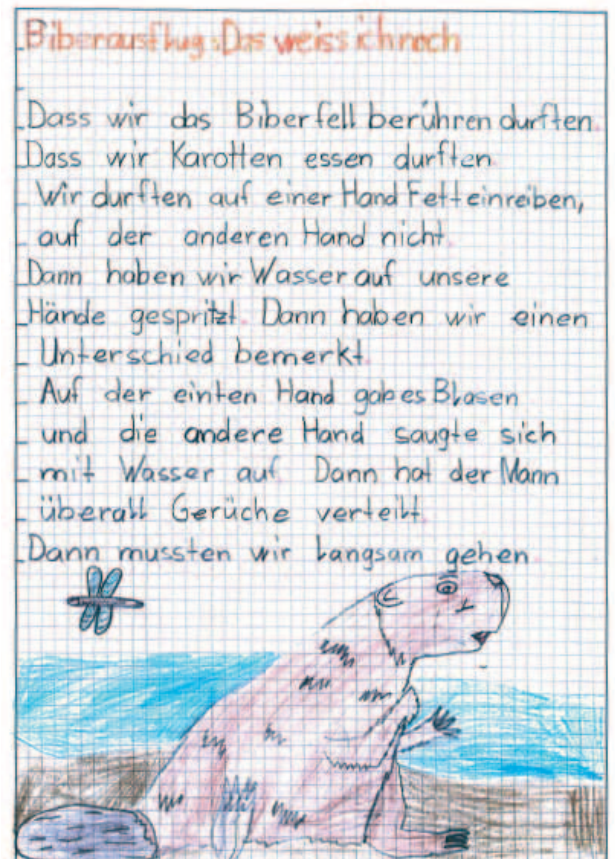 Biberausflug: Das weiss ich noch
Dass wir das Biberfell berühren durften.
Dass wir Karotten essen durften.
Wir durften auf einer Hand Fett einreiben,
auf der anderen Hand nicht.
Dann haben wir Wasser auf unsere
Hände gespritzt. Dann haben wir einen
Unterschied bemerkt.
Auf der einten Hand gab es Blasen
und die andere Hand saugte sich
mit Wasser auf. Dann hat der Mann
überall Gerüche verteilt.
Dann mussten wir langsam gehen.